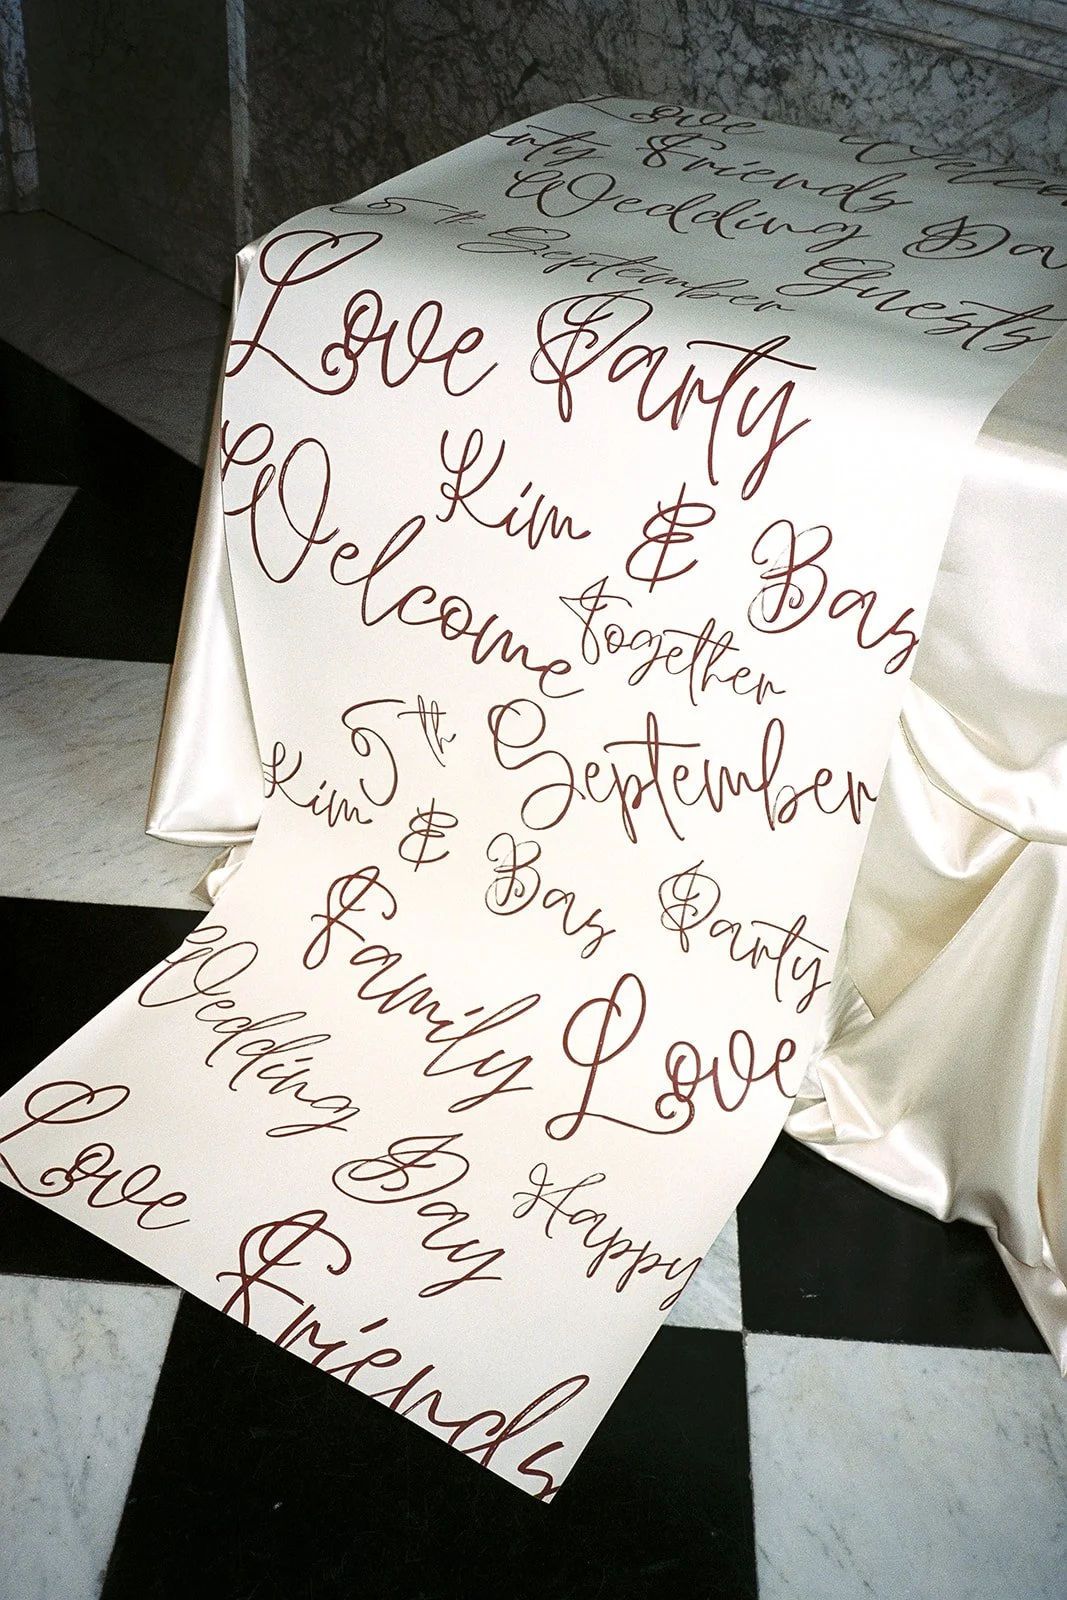 Love Welco
rty Friends
Wedding Da
5th September Guests
Love Party
Kim & Bas
Welcome
Together
5th September
Kim & Bas Party
Family Love
Wedding Day
Love Happy
Friends